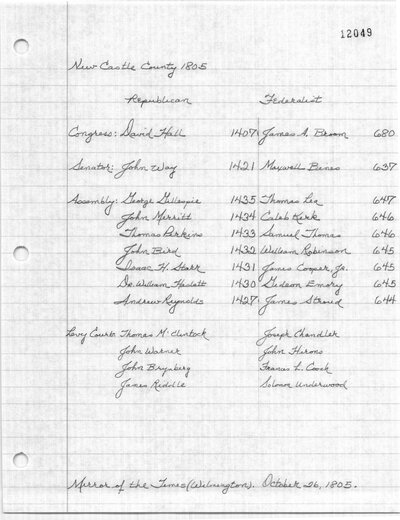 12049
New Castle County 1805
Republican Federalist
Congress: David Hall 1407 James A. Broom 680
Senator: John Way 1421 Maxwell Bines 637
Assembly: George Gillespie 1435 Thomas Lea 647
John Merritt 1434 Caleb Kirk 646
Thomas Perkins 1433 Samuel Thomas 646
John Bird 1432 William Robinson 645
Isaac H. Starr 1431 James Cooper, Jr. 645
Dr. William Haslett 1430 Gideon Emory 645
Andrew Reynolds 1427 James Stroud 644
Levy Court: Thomas McClintock Joseph Chandler
John Warner John Hirons
John Brynberg Francis L. Cooch
James Riddle Solomon Underwood
Mirror of the Times (Wilmington). October 26, 1805.